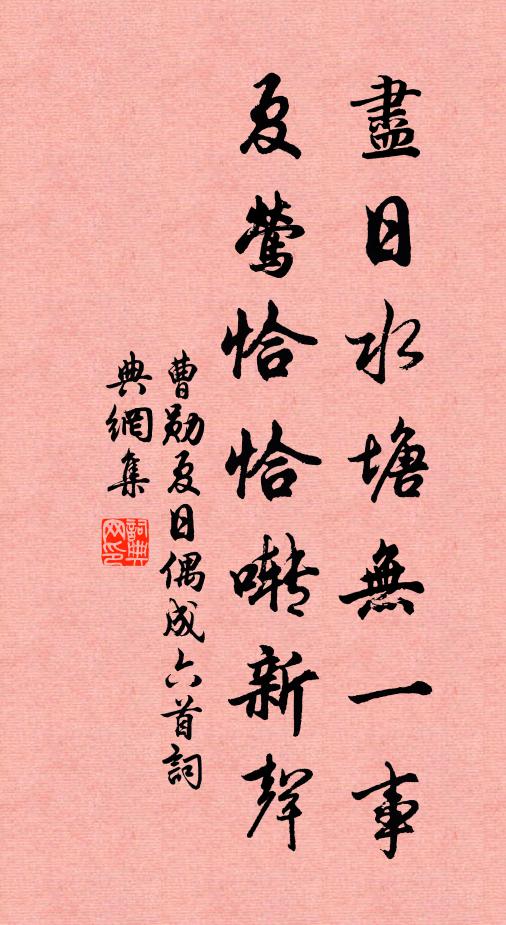 盡日水塘無一事
夏鶯恰恰囀新聲
曹勛夏日偶成六首詞
典網集
詞典
网印